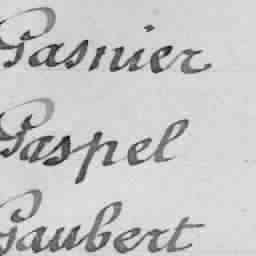 Gasnier
Gaspel
Gaubert